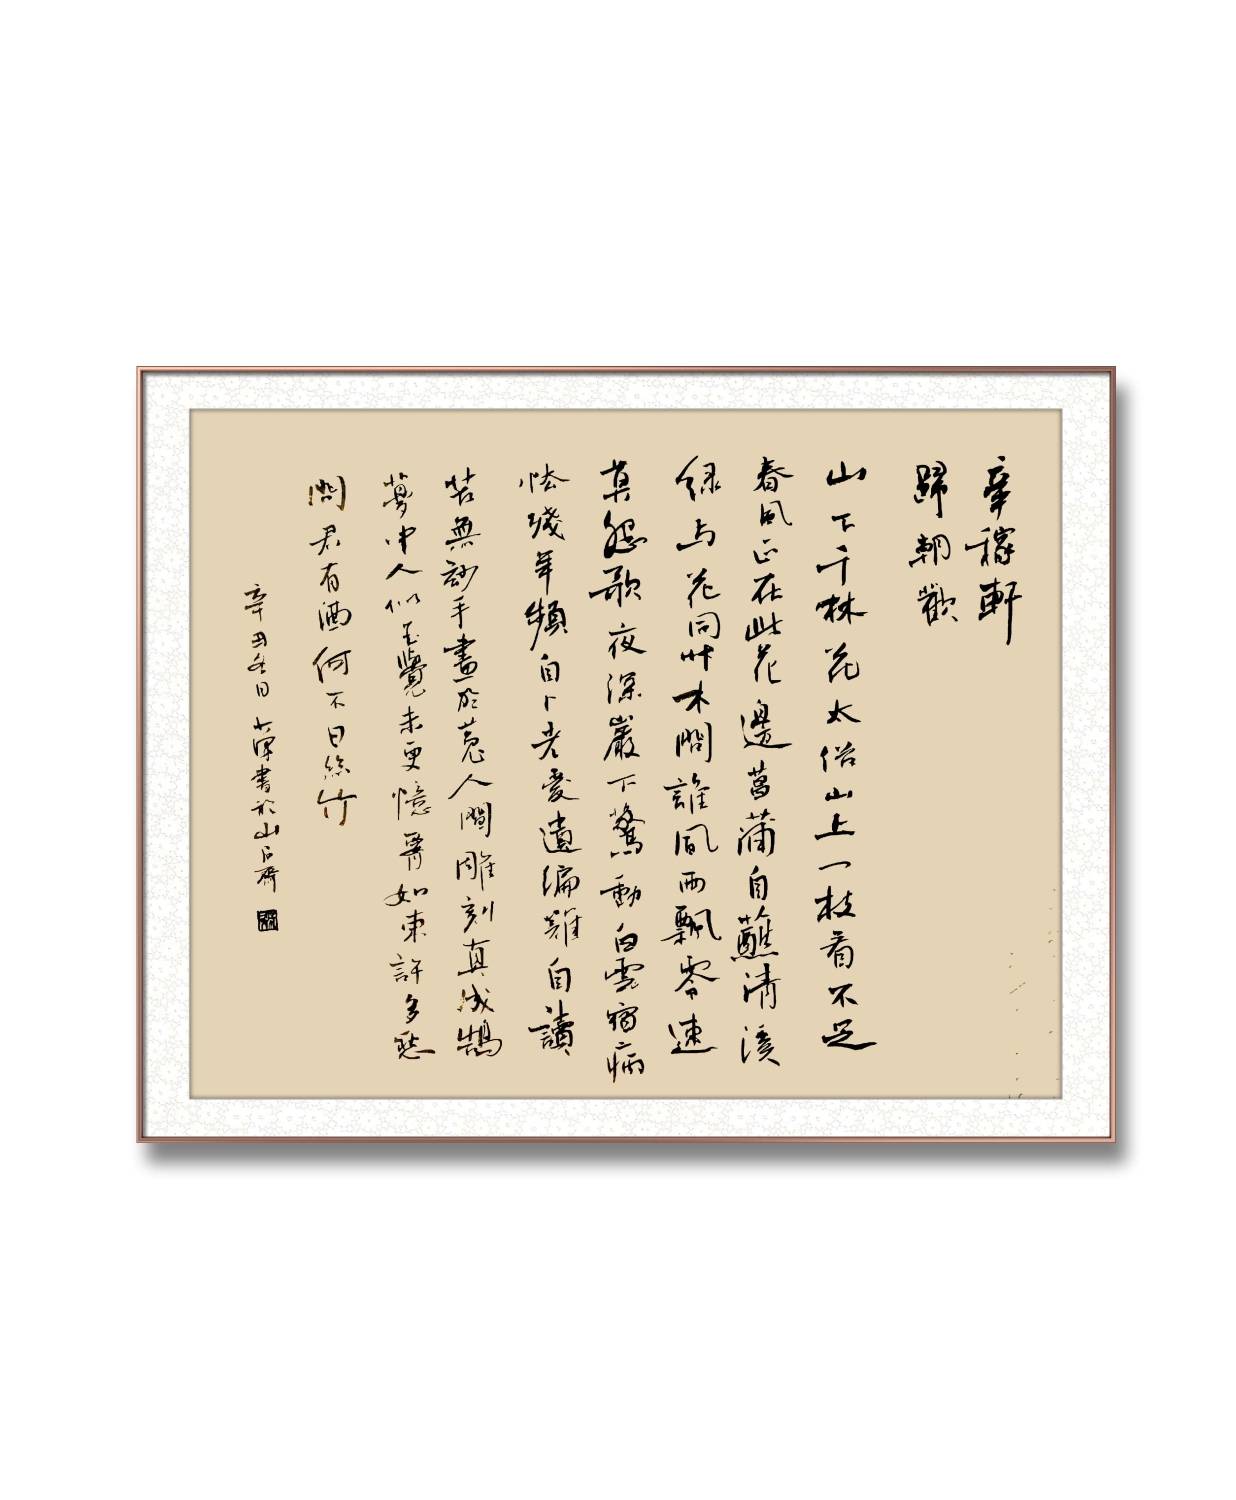 辛稼軒
歸朝歡
山下千林花太俗山上一枝看不足
春風正在此花邊菖蒲自蘸清溪
綠与花同艸木問誰風雨飄零速
莫怨歌夜深巖下驚動白雲宿病
怯殘年頻自卜老愛遺編難自讀
苦無妙手畫於菟人間雕刻真成鵠
夢中人似玉覺来更憶腰如束許多愁
問君有酒何不日絲竹
辛丑冬日 書於山石齋